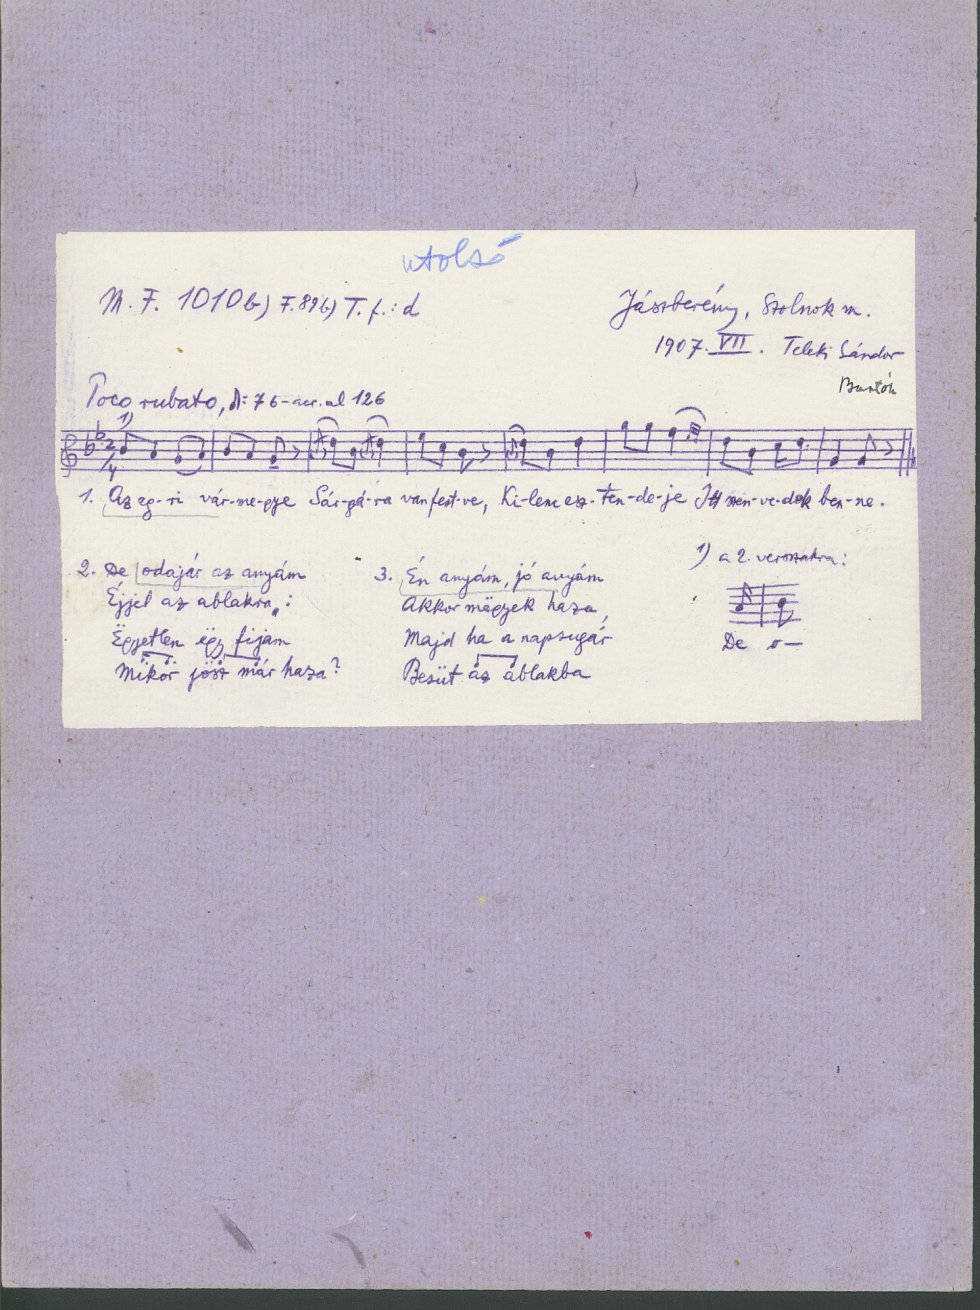 utolsó
M. F. 1010b) F. 89b) T. f.: d
Jászberény, Szolnok m.
1907. VII. Teleki Sándor
Bartók
Poco rubato, ♪=76-acc. al 126
1)
2/4
1. Az eg-ri vár-me-gye Sár-gá-ra van fest-ve, Ki-lenc esz-ten-de-je Itt szen-ve-dek ben-ne.
2. De odajár az anyám
Éjjel az ablakra„:
Ëgyetlen ëgy fijam
Mikor jösz már haza?
3. Én anyám, jó anyám
Akkor mëgyek haza,
Majd ha a napsugár
Besüt az ablakba
1) a 2. versszakra:
De o—